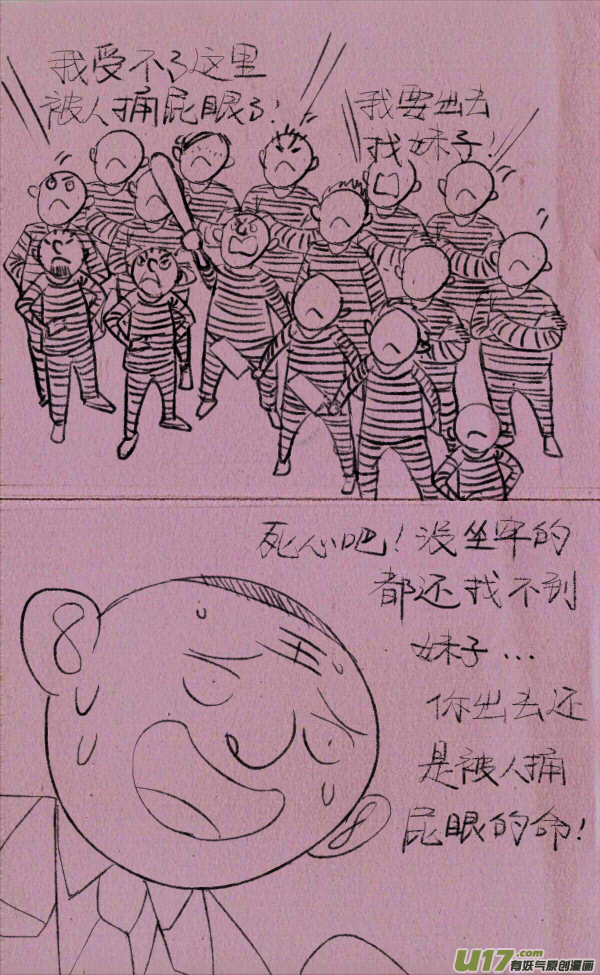 我受不了这里
被人捅屁眼了！
我要出去
找妹子！
死心吧！没坐牢的
都还找不到
妹子…
你出去还
是被人捅
屁眼的命！
U17.com
有妖气原创漫画